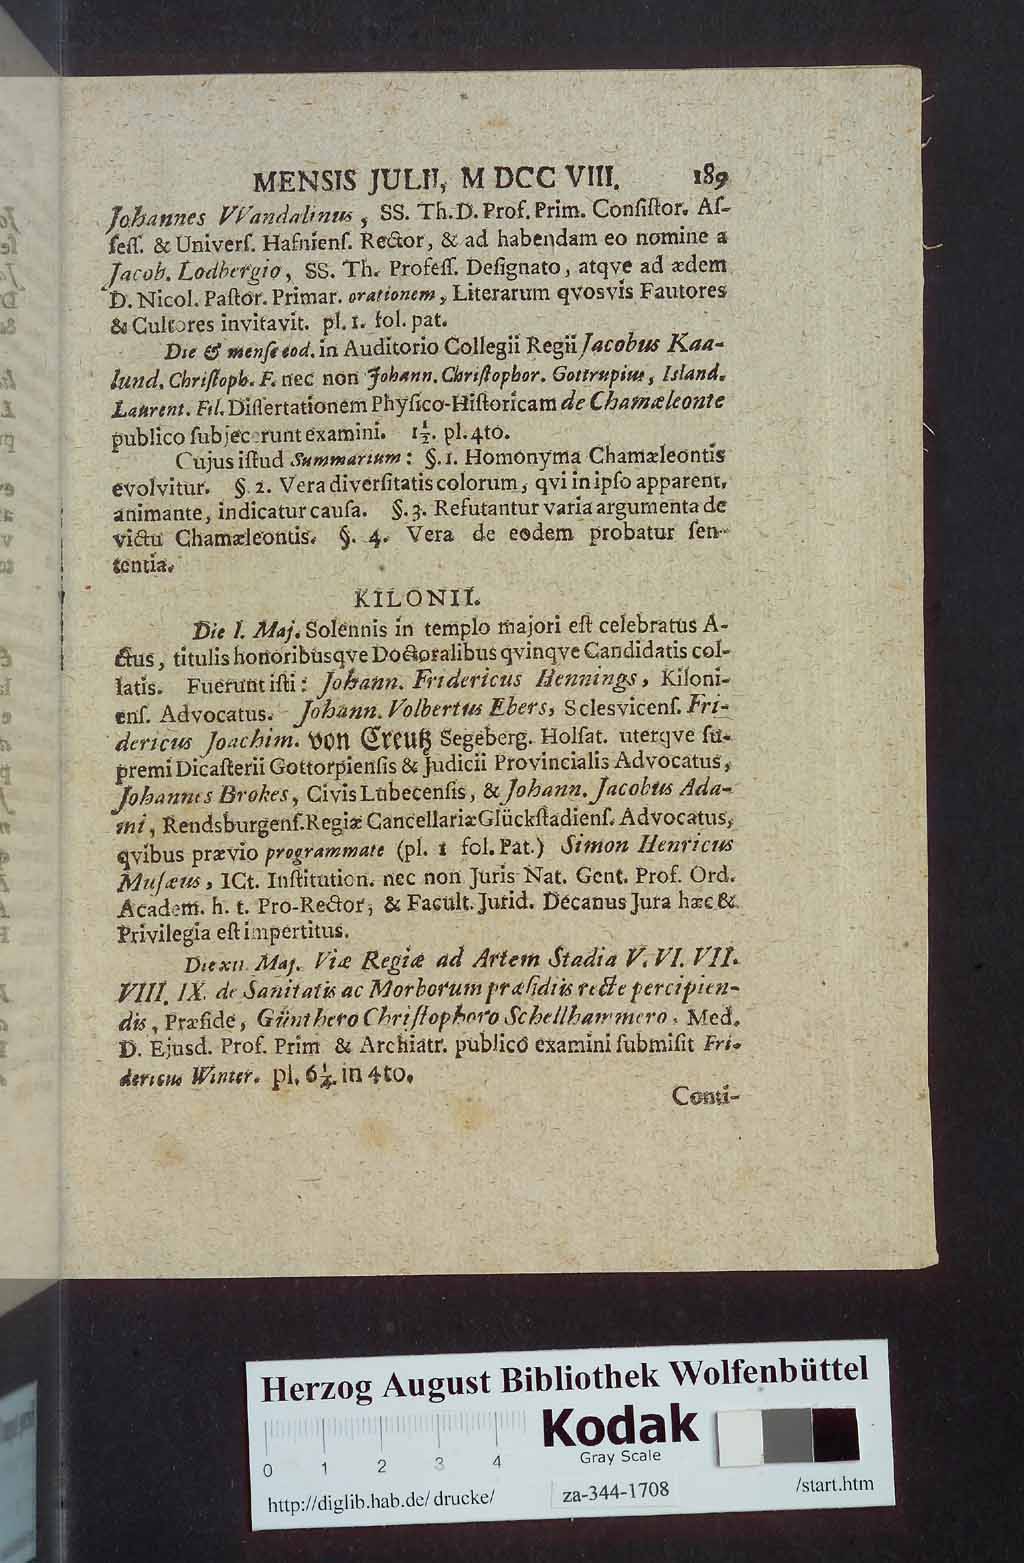 MENSIS JULII, M DCC VIII. 189
Johannes VVandalinus, SS. Th. D. Prof. Prim. Conſiſtor. Aſ-
ſeſſ. & Univerſ. Hafnienſ. Rector, & ad habendam eo nomine a
Jacob. Lodbergio, SS. Th. Profeſſ. Deſignato, atqve ad ædem
D. Nicol. Paſtor. Primar. orationem, Literarum qvosvis Fautores
& Cultores invitavit. pl. 1. fol. pat.
Die & menſe eod. in Auditorio Collegii Regii Jacobus Kaa-
lund, Chriſtoph. F. nec non Johann. Chriſtophor. Gottrupius, Island.
Laurent. Fil. Diſſertationem Phyſico-Hiſtoricam de Chamæleonte
publico ſubjecerunt examini. 1½. pl. 4to.
Cujus iſtud Summarium: §. 1. Homonyma Chamæleontis
evolvitur. §. 2. Vera diverſitatis colorum, qvi in ipſo apparent,
animante, indicatur cauſa. §. 3. Refutantur varia argumenta de
victu Chamæleontis. §. 4. Vera de eodem probatur ſen-
tentia.
KILONII.
Die I. Maj. Solennis in templo majori eſt celebratus A-
ctus, titulis honoribusqve Doctoralibus qvinqve Candidatis col-
latis. Fuerunt iſti: Johann. Fridericus Hennings, Kiloni-
enſ. Advocatus. Johann. Volbertus Ebers, Sclesvicenſ. Fri-
dericus Joachim. von Creutz Segeberg. Holſat. uterqve ſu-
premi Dicaſterii Gottorpienſis & Judicii Provincialis Advocatus,
Johannes Brokes, Civis Lubecenſis, & Johann. Jacobus Ada-
mi, Rendsburgenſ. Regiæ Cancellariæ Glückſtadienſ. Advocatus,
qvibus prævio programmate (pl. 1 fol. Pat.) Simon Henricus
Muſæus, ICt. Inſtitution. nec non Juris Nat. Gent. Prof. Ord.
Academ. h. t. Pro-Rector, & Facult. Jurid. Decanus Jura hæc &
Privilegia eſt impertitus.
Die XII. Maj. Viæ Regiæ ad Artem Stadia V. VI. VII.
VIII. IX. de Sanitatis ac Morborum præſidiis recte percipien-
dis, Præſide, Günthero Chriſtophoro Schellhammero, Med.
D. Ejusd. Prof. Prim & Archiatr. publico examini ſubmiſit Fri-
dericus Winter. pl. 6¼. in 4to.
Conti-
Herzog August Bibliothek Wolfenbüttel
Kodak
Gray Scale
0 1 2 3 4
http://diglib.hab.de/drucke/ za-344-1708 /start.htm